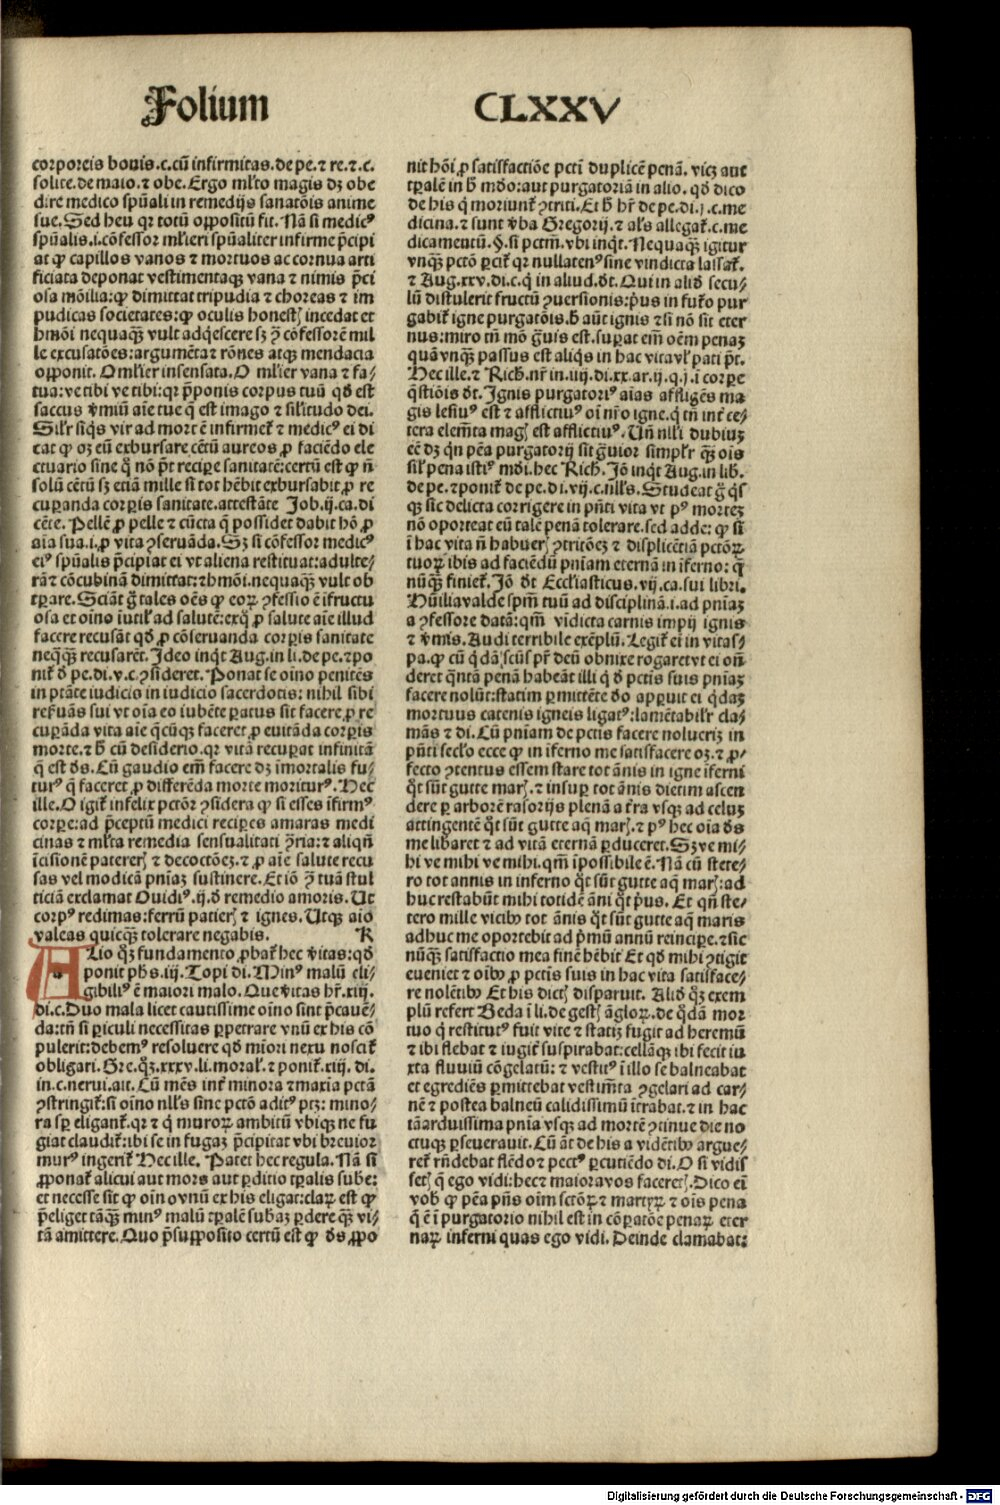 Folium CLXXV
corporeis bonis.c.cū infirmitas.de pe.⁊ re.⁊.c.
solite.de maio.⁊ obe. Ergo ml̄to magis dȝ obe
dire medico spūali in remedijs sanatōis anime
sue. Sed heu qꝛ totū oppositū fit. Nā si medicꝰ
spūalis.i.cōfessor ml̄ieri spūaliter infirme p̄cipi
at ꝙ capillos vanos ⁊ mortuos ac cornua arti
ficiata deponat vestimentaqꝫ vana ⁊ nimis p̄ci
osa mōilia:ꝙ dimittat tripudia ⁊ choreas ⁊ im
pudicas societates:ꝙ oculis honestꝭ incedat et
hmōi nequaqꝫ vult adq̄escere sꝫ ꝯ̄ cōfessorē mil
le excusatōes:argumēta ⁊ rōnes atqꝫ mendacia
opponit. O ml̄ier insensata. O ml̄ier vana ⁊ fa⸗
tua:ve tibi ve tibi:qꝛ p̄ponis corpus tuū qd̄ est
saccus v̄miū aīe tue q̄ est imago ⁊ sil̄itudo dei.
Sil̄r siqs vir ad mortē infirmet̄ ⁊ medicꝰ ei di
cat ꝙ oꝫ eū exbursare cētū aureos ꝓ faciēdo ele
ctuario sine q̊ nō pōt recipe sanitatē:certū est ꝙ n̄
solū cētū sꝫ etiā mille si tot hēbit exbursabit ꝓ re
cuꝑanda corꝑis sanitate.attestāte Job.ij.ca.di
cēte. Pellē ꝓ pelle ⁊ cūcta q̄ possidet dabit hō ꝓ
aīa sua.i.ꝓ vita ꝯseruāda. Sꝫ si cōfessor medicꝰ
eiꝰ spūalis p̄cipiat ei vt aliena restituat:adulte⸗
rā ⁊ cōcubinā dimittat:⁊ hmōi.nequaqꝫ vult ob
tꝑare. Sciāt g̊ tales oēs ꝙ eoꝝ ꝯfessio ē īfructu
osa et oīno īutil̄ ad salutē:exq̊ ꝓ salute aīe illud
facere recusāt qd̄ ꝓ cōseruanda corꝑis sanitate
neqꝫqꝫ recusarēt. Ideo inqt Aug.in li.de pe.⁊ po
nit̄ d̄ pe.di.v.c.ꝯsideret. Ponat se oīno penitēs
in ptāte iudicio in iudicio sacerdotis: nihil sibi
reẜuās sui vt oīa eo iubēte ꝑatus sit facere ꝓ re
cuꝑāda vita aīe q̄cūqꝫ faceret ꝓ euitāda corꝑis
morte.⁊ h̄ cū desiderio.qꝛ vitā recuꝑat infinitā
q̄ est ds̄. Cū gaudio em̄ facere dꝫ īmortalis fu⸗
turꝰ q̄ faceret ꝓ differēda morte moriturꝰ. Hec
ille. O igit̄ infelix pctōr ꝯsidera ꝙ si esses īfirmꝰ
corpe:ad p̄ceptū medici reciꝑes amaras medi
cinas ⁊ ml̄ta remedia sensualitati ꝯ̄ria:⁊ aliqn̄
īcisionē patererꝭ ⁊ decoctōeꝫ.⁊ ꝓ aīe salute recu
sas vel modicā pnīaꝫ sustinere. Et iō ꝯ̄ tuā stul
ticiā exclamat Ouidiꝰ.ij.d̄ remedio amoris. Ut
corpꝰ redimas:ferrū patierꝭ ⁊ ignes. Utqꝫ aīo
valeas quicqꝫ tolerare negabis. R
ALio qꝫ fundamento ꝓbat̄ hec v̄itas:qd̄
ponit ph̄s.iij.Topi.di. Minꝰ malū eli⸗
gibiliꝰ ē maiori malo. Que v̄itas hr̄.xiij.
di.c.Duo mala licet cautissime oīno sint p̄cauē⸗
da:tn̄ si ꝑiculi necessitas ꝑpetrare vnū ex his cō
pulerit:debemꝰ resoluere qd̄ mīori nexu noscit̄
obligari. Gre.qꝫ.xxxv.li.moral̄.⁊ ponit̄.xiij. di.
in.c.nerui.ait. Cū mēs int̄ minora ⁊ maxīa pctā
ꝯstringit̄:si oīno nll̄s sine pctō aditꝰ ptꝫ: mino⸗
ra sꝑ eligant̄.qꝛ ⁊ q̄ muroꝝ ambitū vbiqꝫ ne fu
giat claudit̄:ibi se in fugaꝫ p̄cipitat vbi breuior
murꝰ ingerit̄ Hec ille. Patet hec regula. Nā si
ꝓponat̄ alicui aut mors aut ꝑditio tꝑalis sube:
et necesse sit ꝙ oīn ovnū ex his eligat:claꝝ est ꝙ
p̄eliget tāqꝫ minꝰ malū tꝑalē subaꝫ ꝑdere qꝫ vi⸗
tā amittere. Quo p̄supposito certū est ꝙ ds̄ ꝓpo
nit hōi ꝓ satisfactiōe pcti duplicē penā. vicꝫ aut
tꝑalē in h̄ mdō:aut purgatoriā in alio. qd̄ dico
de his q̄ moriunt̄ ꝯtriti. Et h̄ hr̄ de pe.di.j.c.me
dicina.⁊ sunt v̄ba Gregorij.⁊ al̄s allegat̄.c.me
dicamentū.§.si pctm̄.vbi inqt. Nequaqꝫ igitur
vnqꝫ pctō ꝑcit̄ qꝛ nullatenꝰ sine vindicta laxat̄.
⁊ Aug.xxv.di.c.q̄ in aliud.dt. Qui in aliō secu⸗
lū distulerit fructū ꝯuersionis:pꝰus in futuro pur
gabit̄ igne purgatōis.h̄ aūt ignis ⁊si nō sit eter
nus:miro tn̄ mō g̊uis est.suꝑat em̄ oēm penaꝫ
quā vnqꝫ passus est aliqs in hac vita vl̄ pati pōt.
Hec ille.⁊ Rich.nr̄ in.iiij.di.xx.ar.ij.q.j.ī corpe
q̄stiōis dt. Ignis purgatoriꝰ aīas affligēs ma
gis lesiuꝰ est ⁊ afflictiuꝰ oī nr̄o igne.q̄ tn̄ int̄ ce⸗
tera elemēta magꝭ est afflictiuꝰ. Un̄ nll̄i dubiuꝫ
eē dꝫ qn̄ pēa purgatorij sit g̊uior simpl̄r qꝫ ois
sil̄ pena istiꝰ mdī.hec Rich. Iō inqt Aug.in lib.
de pe.⁊ ponit̄ de pe.di.vij.c.nll̄s. Studeat g̊ q̄s
qꝫ sic delicta corrigere in pn̄ti vita vt pꝰ morteꝫ
nō oporteat eū talē penā tolerare.sed adde: ꝙ si
ī hac vita n̄ habuerꝭ ꝯtritōeꝫ ⁊ displicētiā pctōꝝ
tuoꝝ ibis ad faciēdū pniam eternā in īferno: q̄
nūqꝫ finiet̄. Iō dt Ecclīasticus.vij.ca.sui libri.
Hūilia valde spm̄ tuū ad disciplinā.i.ad pnīaꝫ
a ꝯfessore datā:qm̄ vīdicta carnis impij ignis
⁊ v̄mis. Audi terribile exēplū. Legit̄ ei in vitas⸗
pa.ꝙ cū q̄dā scūs pr̄ deū obnixe rogaret vt ei on̄
deret q̄ntā penā habeāt illi q̄ d̄ pctis suis pnīaꝫ
facere nolūt:statim ꝑmittēte do apꝑuit ei q̄daꝫ
mortuus catenis igneis ligatꝰ:lamētabil̄r cla⸗
māsꝫ di. Cū pniam de pctis facere noluerīꝫ in
pn̄ti secl̄o ecce ꝙ in īferno me satisfacere oꝫ.⁊ ꝓ⸗
fecto ꝯtentus essem stare tot ānis in igne īferni
q̊t sūt gutte marꝭ.⁊ insuꝑ tot ānis dietim ascen
dere ꝑ arborē rasorijs plenā a t̄ra vsqꝫ ad celuꝫ
attingentē q̊t sūt gutte aq̄ marꝭ.⁊ pꝰ hec oīa ds̄
me libaret ⁊ ad vitā eternā ꝑduceret. Sꝫ ve mi⸗
hi ve mihi ve mihi.qm̄ īpossibile ē. Nā cū stete⸗
ro tot annis in inferno q̊t sūt gutte aq̄ marꝭ:ad
huc restabūt mihi totidē āni q̊t pꝰus. Et qn̄ ste⸗
tero mille vicib tot ānis q̊t sūt gutte aq̄ maris
adhuc me oportebit ad p̄mū annū reincipe.⁊ sic
nūqꝫ satisfactio mea finē hēbit Et qd̄ mihi ꝯtigit
eueniet ⁊ oīb ꝓ pctis suis in hac vita satisface⸗
re nolētib Et his dictꝭ disparuit. Aliō qꝫ exem
plū refert Beda ī li.de gestꝭ āgloꝝ.de q̄dā mor
tuo q̄ restitutꝰ fuit vite ⁊ statiꝫ fugit ad heremū
⁊ ibi flebat ⁊ iugit̄ suspirabat:cellāqꝫ ibi fecit iu
xta fluuiū cōgelatū: ⁊ vestitꝰ ī illo se balneabat
et egrediēs ꝑmittebat vestim̄ta ꝯgelari ad car⸗
nē ⁊ postea balneū calidissimū ītrabat.⁊ in hac
tā arduissima pnīa vsqꝫ ad mortē ꝯtinue die no
ctuqꝫ ꝑseuerauit. Cū āt de his a vidētib argue⸗
ret̄ rn̄debat flēdo ⁊ pectꝰ ꝑcutiēdo di. O si vidis
setꝭ q̄ ego vidi:hec ⁊ maiora vos faceretꝭ. Dico eī
vob ꝙ pēa pn̄s oīm sctōꝝ ⁊ martyꝝ ⁊ oīs pena
q̄ ē ī purgatorio nihil est in cōꝑatōe penaꝝ eter
naꝝ inferni quas ego vidi. Deinde clamabat:
Digitalisierung gefördert durch die Deutsche Forschungsgemeinschaft - DFG